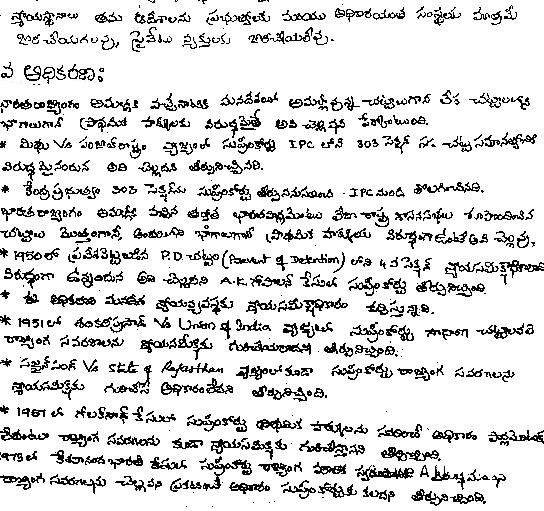 న్యాయస్థానాలు తమ ఆదేశాలను ప్రభుత్వాలకు మరియు అధికారయుత సంస్థలకు మాత్రమే
జారీ చేయగలవు, ప్రైవేటు వ్యక్తులకు జారీచేయలేవు.
వ అధికరణ:
భారతరాజ్యాంగం అమల్లోకి వచ్చేనాటికి మనదేశంలో అమల్లో చట్టాలుగాని లేక చట్టాలలోని
భాగాలుగాని ప్రాథమిక హక్కులకు విరుద్ధమైతే అవి చెల్లవని పేర్కొంటుంది.
* మిథు Vs పంజాబ్ రాష్ట్రం వ్యాజ్యంలో సుప్రీంకోర్టు IPC లోని 303 సెక్షన్ చట్ట సమానత్వానికి
విరుద్ధమైనందున అది చెల్లదని తీర్పునిచ్చినది.
* కేంద్ర ప్రభుత్వం 303 సెక్షన్‌ను సుప్రీంకోర్టు తీర్పుననుసరించి IPC నుండి తొలగించినది.
భారత రాజ్యాంగం అమలులోకి వచ్చిన తర్వాత భారతపార్లమెంటు లేదా రాష్ట్ర శాసనసభలు రూపొందించిన
చట్టాలు మొత్తంగాని, అందులోని భాగాలుగాని ప్రాథమిక హక్కులకు విరుద్ధంగా ఉంటే అవి చెల్లవు.
* 1950లో ప్రవేశపెట్టబడిన P.D. చట్టం (Prevent of Detention) లోని 14వ సెక్షన్ న్యాయసమీక్షాధికారానికి
విరుద్ధంగా ఉన్నందున అది చెల్లదని A.K. గోపాలన్ కేసులో సుప్రీంకోర్టు తీర్పునిచ్చింది
* ఈ అధికరణ మూలంగా న్యాయవ్యవస్థకు న్యాయసమీక్షాధికారం కల్పిస్తున్నది.
* 1951 లో శంకరీప్రసాద్ Vs Union of India వ్యాజ్యంలో సుప్రీంకోర్టు సాధారణ చట్టాలవలె
రాజ్యాంగ సవరణలను న్యాయసమీక్షకు గురిచేయరాదని తీర్పునిచ్చింది.
* సజ్జన్‌సింగ్ Vs State of Rajasthan వ్యాజ్యంలోకూడా సుప్రీంకోర్టు రాజ్యాంగ సవరణలను
న్యాయసమీక్షకు గురిచేసే అధికారంలేదని తీర్పునిచ్చింది.
* 1967 లో గోలక్‌నాథ్ కేసులో సుప్రీంకోర్టు ప్రాథమిక హక్కులను సవరించే అధికారం పార్లమెంటుకు
లేదంటూ రాజ్యాంగ సవరణలను కూడా న్యాయసమీక్షకు గురిచేస్తామని తీర్పునిచ్చింది.
1973లో కేశవానంద భారతి కేసులో సుప్రీంకోర్టు రాజ్యాంగ మౌలిక స్వరూపానికి విరుద్ధమైన
రాజ్యాంగ సవరణలను చెల్లవని ప్రకటించే అధికారం సుప్రీంకోర్టుకు కలదని తీర్పునిచ్చింది.